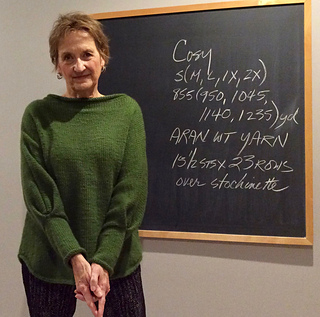 Cosy
S(M, L, 1X, 2X)
855(950, 1045,
1140, 1235)yd
ARAN WT YARN
15 1/2 STS X 23 ROWS
over stockinette